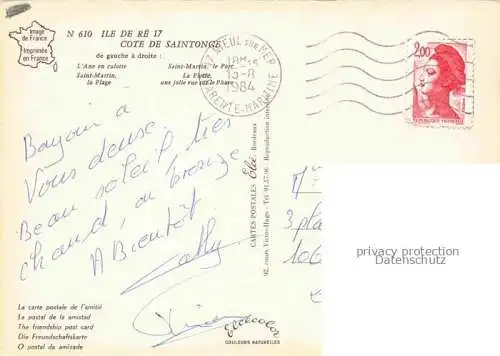 Image
de France
Imprimée
en France
N 610 ILE DE RÉ 17
COTE DE SAINTONGE
de gauche à droite :
L'Ane en culotte Saint-Martin, le Port
Saint-Martin, La Flotte,
la Plage une jolie rue sur le Phare
17 NIEUL SUR MER
18H
13-8
1984
CHARENTE-MARITIME
2,00
REPUBLIQUE FRANÇAISE
Bonjour à
Vous deux.
Beau soleil très
chaud, on bronze
A Bientôt
Cathy
CARTES POSTALES Elcé Bordeaux
92, cours Victor-Hugo - Tél. 91.57.96 - Reproduction interdite
3 pla
106
privacy protection
Datenschutz
La carte postale de l'amitié
La postal de la amistad
The friendship post card
Die Freundschaftskarte
O postal da amizade
Elcécolor
COULEURS NATURELLES